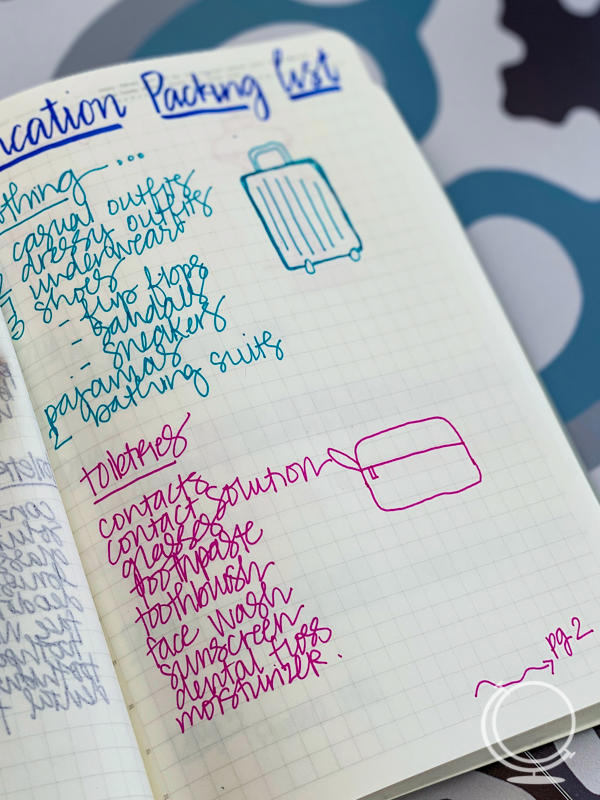 cation Packing list
othing ...
casual outfits
dressy outfits
underwear
3 shoes
- flip flops
- sandals
- sneakers
pajamas
2 bathing suits
toiletries
contacts
contact solution
glasses
toothpaste
toothbrush
face wash
sunscreen
dental floss
moisturizer.
pg 2